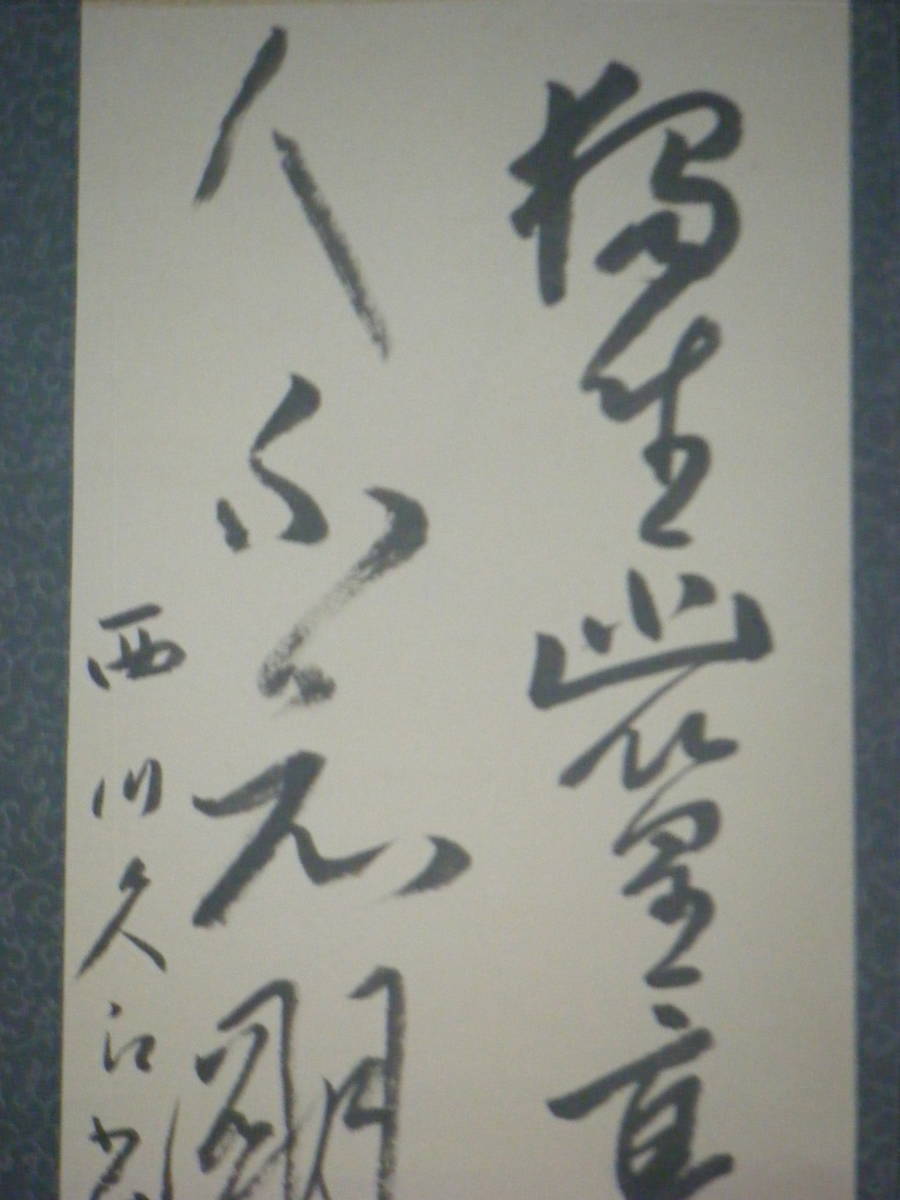 獨坐幽篁裏
人不知明
西川久江書